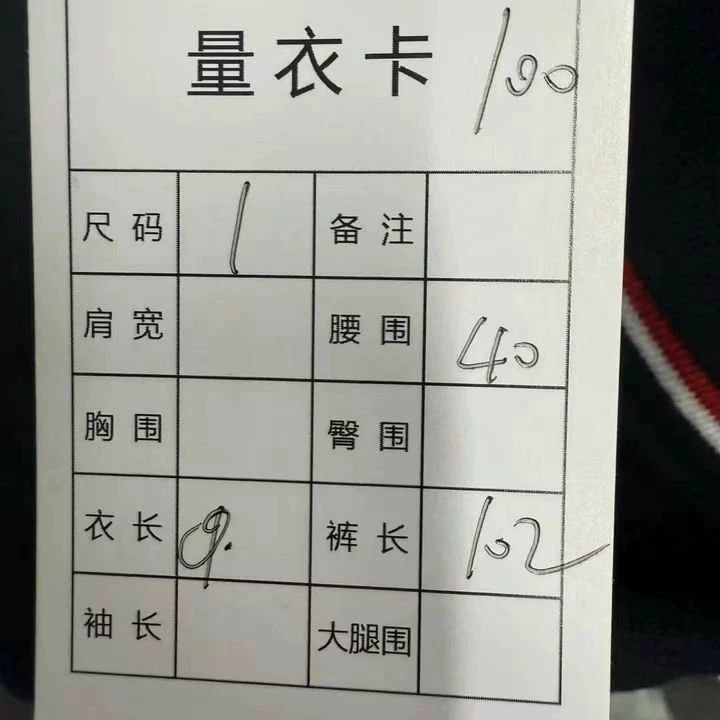 量衣卡 100
尺码 1 备注
肩宽 腰围 40
胸围 臀围
衣长 9. 裤长 102
袖长 大腿围